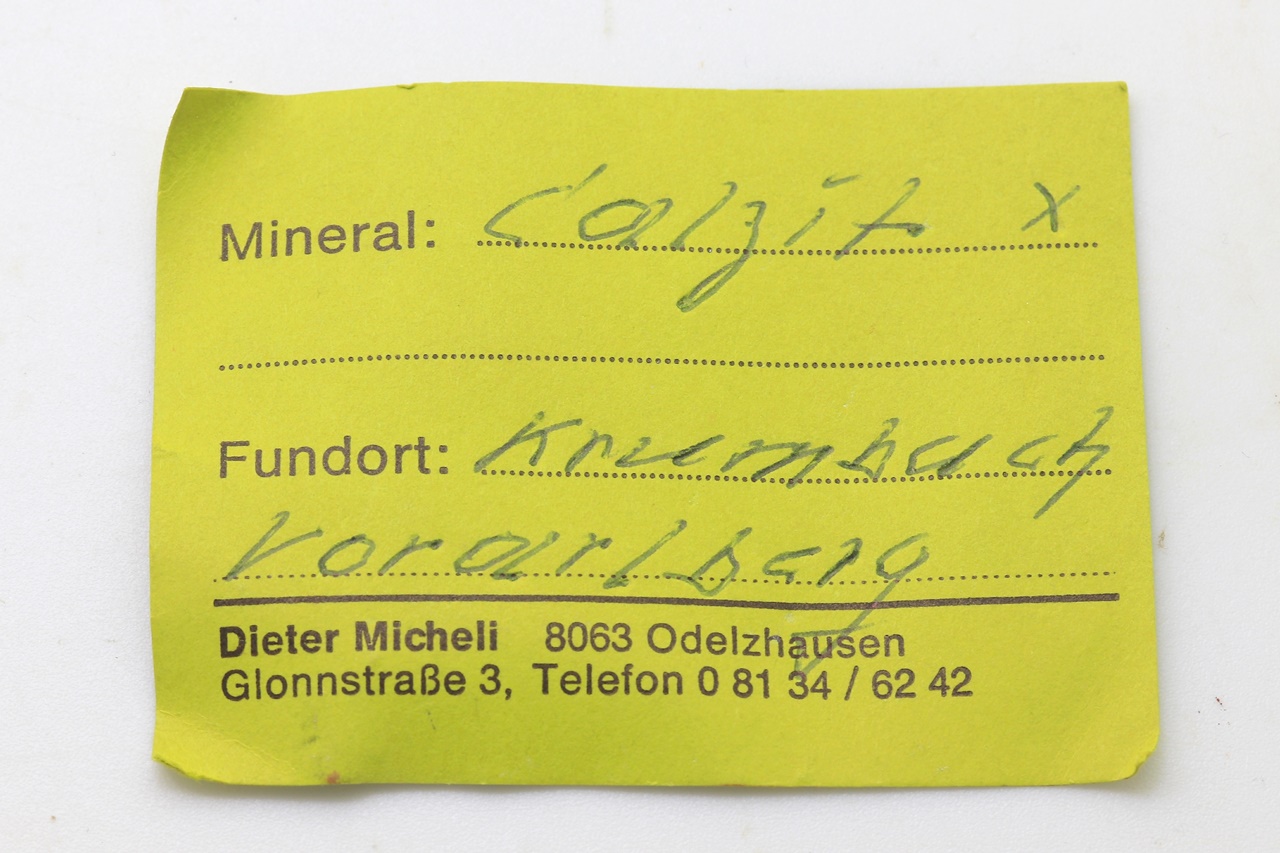 Mineral: Calzit x
Fundort: Krumbach
Vorarlberg
Dieter Micheli 8063 Odelzhausen
Glonnstraße 3, Telefon 0 81 34 / 62 42